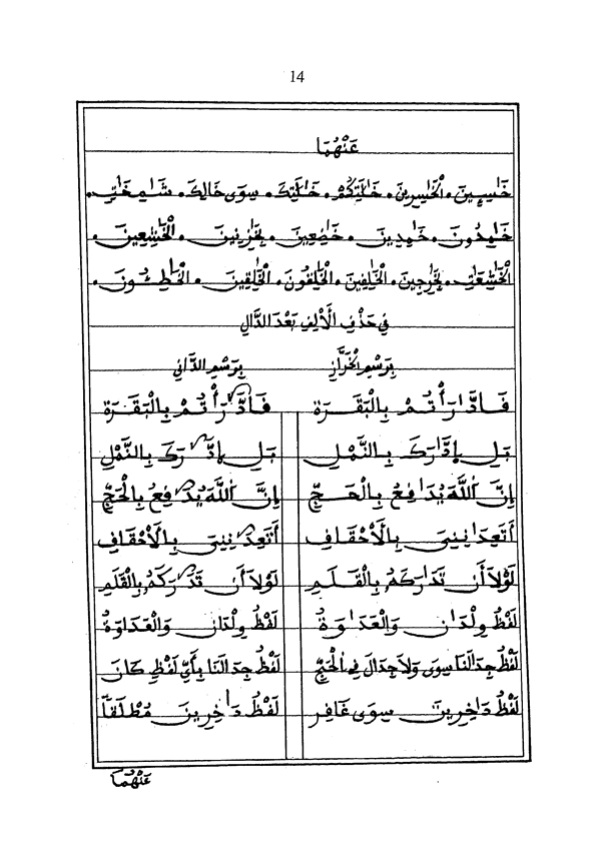 14
عَنْهُمَا
خَٰسِـِٕينَ. الْخَٰسِرِينَ. خَٰلَتِكُمْ. خَٰلَتِكَ. سِوَى خَالِكَ. شَٰمِخَٰتٍ.
خَٰمِدُونَ. خَٰمِدِينَ. خَٰضِعِينَ. بِخَٰزِنِينَ. الْخَٰشِعِينَ.
الْخَٰشِعَٰتِ. بِخَٰرِجِينَ. الْخَٰلِفِينَ. الْخَٰلِقُونَ. الْخَٰلِقِينَ. الْخَٰطِـُٔونَ.
فِي حَذْفِ الْأَلِفِ بَعْدَ الدَّالِ
بِرَسْمِ الْخَرَّازِ بِرَسْمِ الدَّانِي
فَادَّٰرَٰٔتُمْ بِالْبَقَرَةِ فَادَّٰرَأْتُمْ بِالْبَقَرَةِ
بَلِ إِدَّٰرَكَ بِالنَّمْلِ بَلِ إِدَّٰرَكَ بِالنَّمْلِ
إِنَّ اَللَّهَ يُدَٰفِعُ بِالْحَجِّ إِنَّ اَللَّهَ يُدَٰفِعُ بِالْحَجِّ
أَتَعِدَٰنِنِي بِالْأَحْقَافِ أَتَعِدَٰنِنِي بِالْأَحْقَافِ
لَوْلَا أَن تَدَٰرَكَهُ بِالْقَلَمِ لَوْلَا أَن تَدَٰرَكَهُ بِالْقَلَمِ
لَفْظُ وِلْدَٰن وَالْعَدَٰوَةُ لَفْظُ وِلْدَان وَالْعَدَاوَةُ
لَفْظُ جِدَٰلَنَا سِوَى وَلَا جِدَالَ فِي الْحَجِّ لَفْظُ جِدَالَنَا بِأَيِّ لَفْظٍ كَانَ
لَفْظُ دَٰخِرِينَ سِوَى غَافِر لَفْظُ دَٰخِرِينَ مُطْلَقاً
عَنْهُمَا